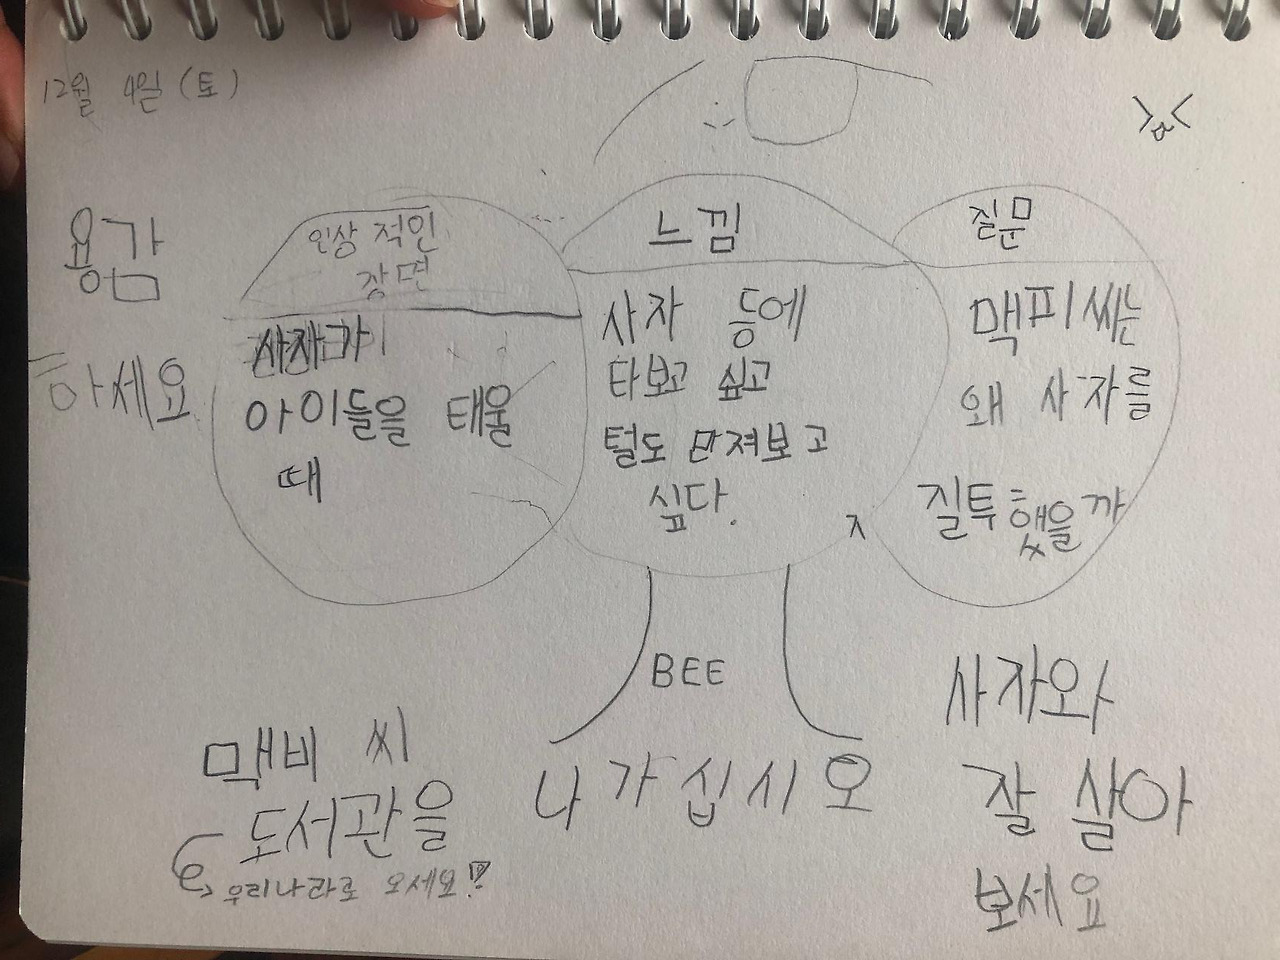 12월 4일 (토)
용감
하세요
인상 적인
장면
사자가
아이들을 태울
때
느낌
사자 등에
타보고 싶고
털도 만져보고
싶다.
질문
맥피씨는
왜 사자를
질투했을까
ㅈ
BEE
맥비 씨
도서관을
나가십시오
우리나라로 오세요!
사자와
잘 살아
보세요